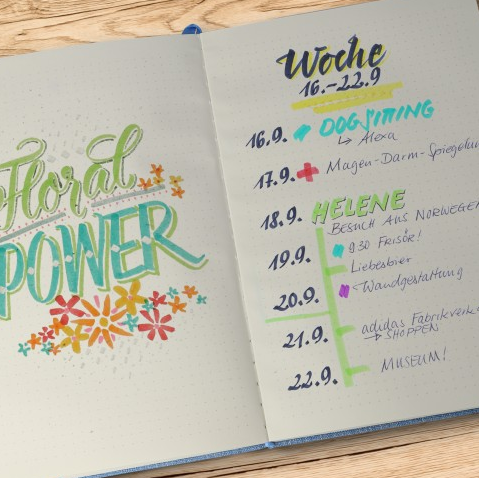 Floral
POWER
Woche
16.-22.9
16.9. DOGSITTING
↳ Alexa
17.9. Magen-Darm-Spiegelun
18.9. HELENE
BESUCH AUS NORWEGEN
19.9. 9.30 FRISÖR!
Liebesbier
20.9. Wandgestaltung
21.9. adidas Fabrikverk
→ SHOPPEN
22.9. MUSEUM!